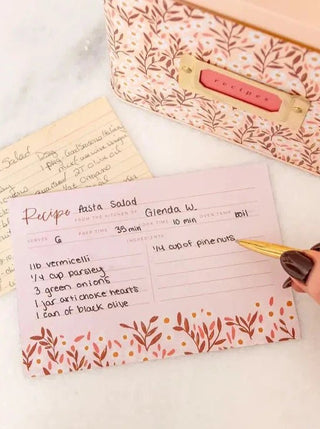 recipes
Salad Dressing
Recipe Pasta Salad
FROM THE KITCHEN OF Glenda W.
SERVES 6 PREP TIME 35 min COOK TIME 10 min OVEN TEMP boil
INGREDIENTS
1lb vermicelli
1/4 cup parsley
3 green onions
1 jar artichoke hearts
1 can of black olive
1/4 cup of pinenuts